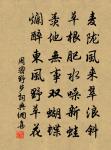 麥隴風來翠浪斜
草根肥水噪新蛙
羨他無事雙蝴蝶
爛醉東風野草花
周密野步詞典網書